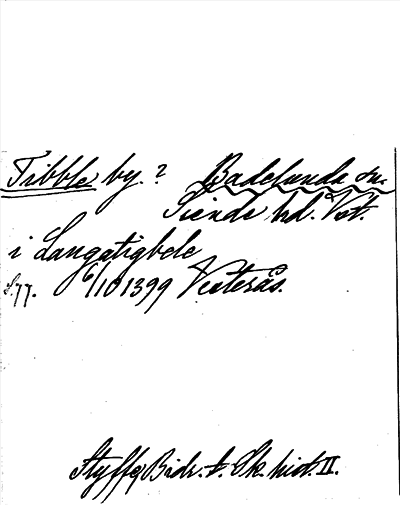 Tibble by. ? Badelunda sn.
Siende hd. Vst.
i Langatigbele
s. 77. 6/10 1399 Vesterås.
Styffe Bidr. t. Sk. hist. II.